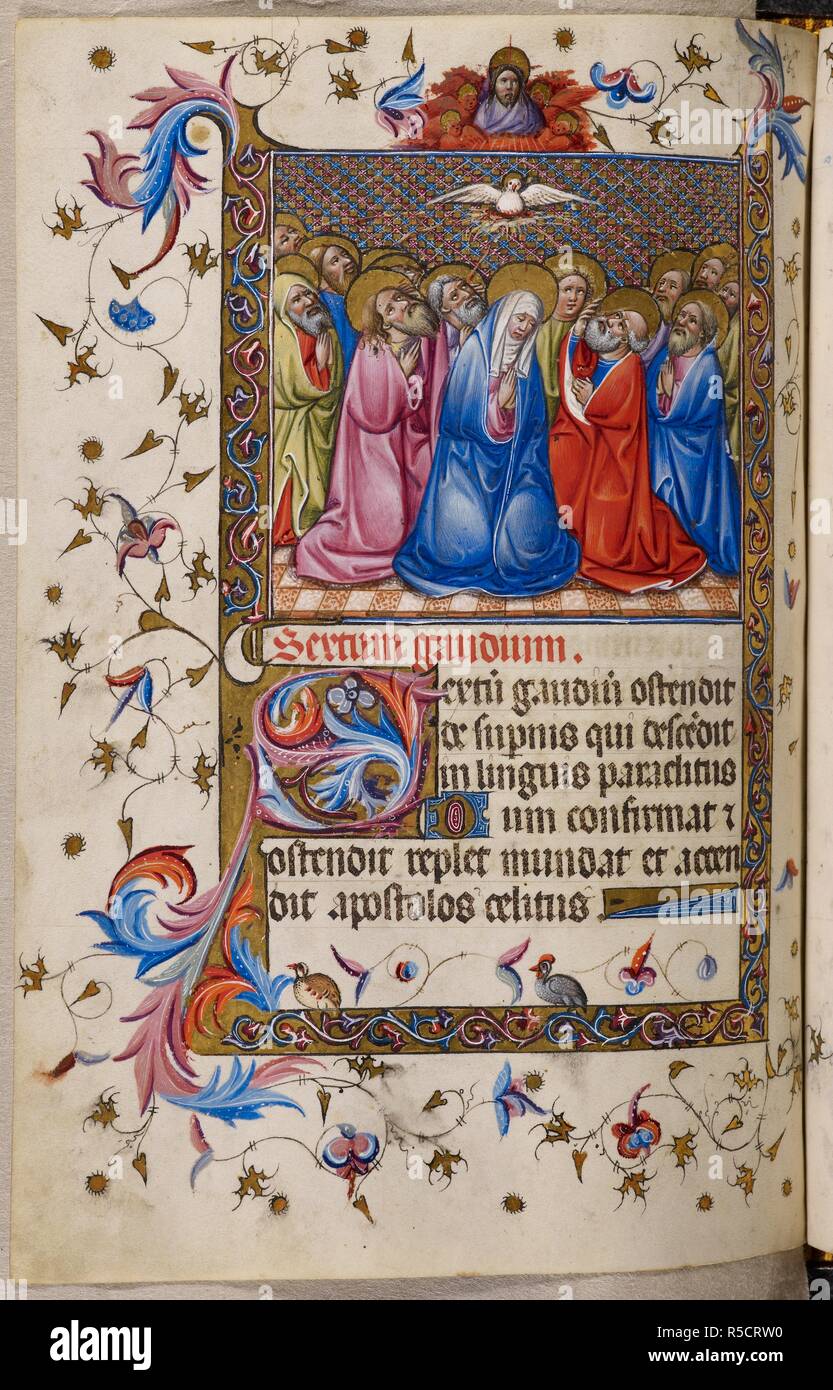 Sextum gaudium.
Sextū gaudiū ostendit
de supnis qui descēdit
in linguis paraclitus
Dum confirmat ⁊
ostendit replet mundat et accen
dit apostolos celitus.
alamy
Image ID: R5CRW0
www.alamy.com